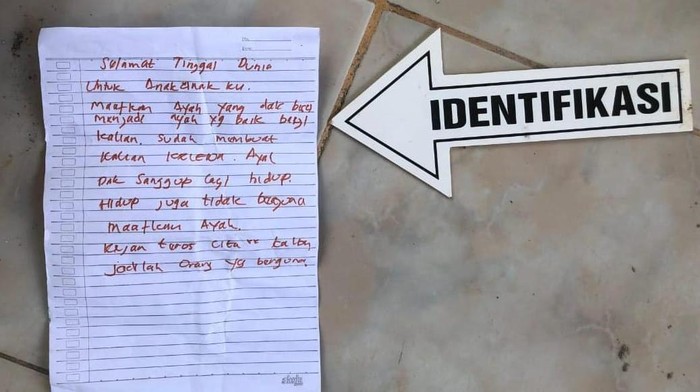 Selamat Tinggal Dunia
Untuk Anak Anak ku.
Maafkan Ayah yang dak bisa
menjadi ayah yg baik bagi
kalian. sudah membuat
kalian kecewa. Ayah
Dak sanggup lagi hidup.
Hidup juga tidak berguna
maafkan Ayah.
Kejar terus cita "
jadilah orang yg berguna.
IDENTIFIKASI